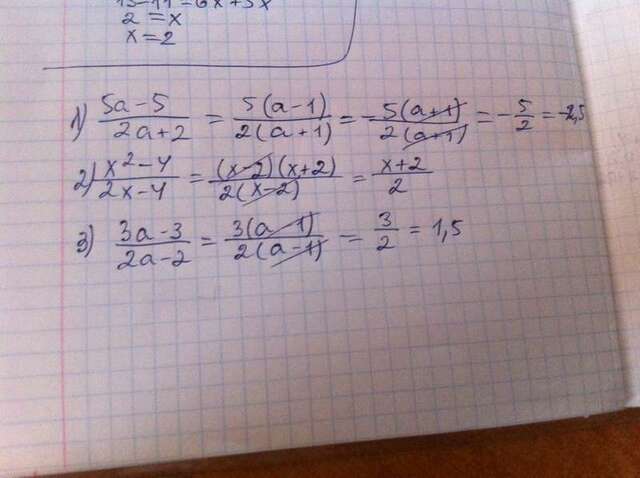 = 6x + 3x
2 = x
x = 2
1) \frac{5a-5}{2a+2} = \frac{5(a-1)}{2(a+1)} = -\frac{5(a+1)}{2(a+1)} = -\frac{5}{2} = -2,5
2) \frac{x^2-4}{2x-4} = \frac{(x-2)(x+2)}{2(x-2)} = \frac{x+2}{2}
3) \frac{3a-3}{2a-2} = \frac{3(a-1)}{2(a-1)} = \frac{3}{2} = 1,5